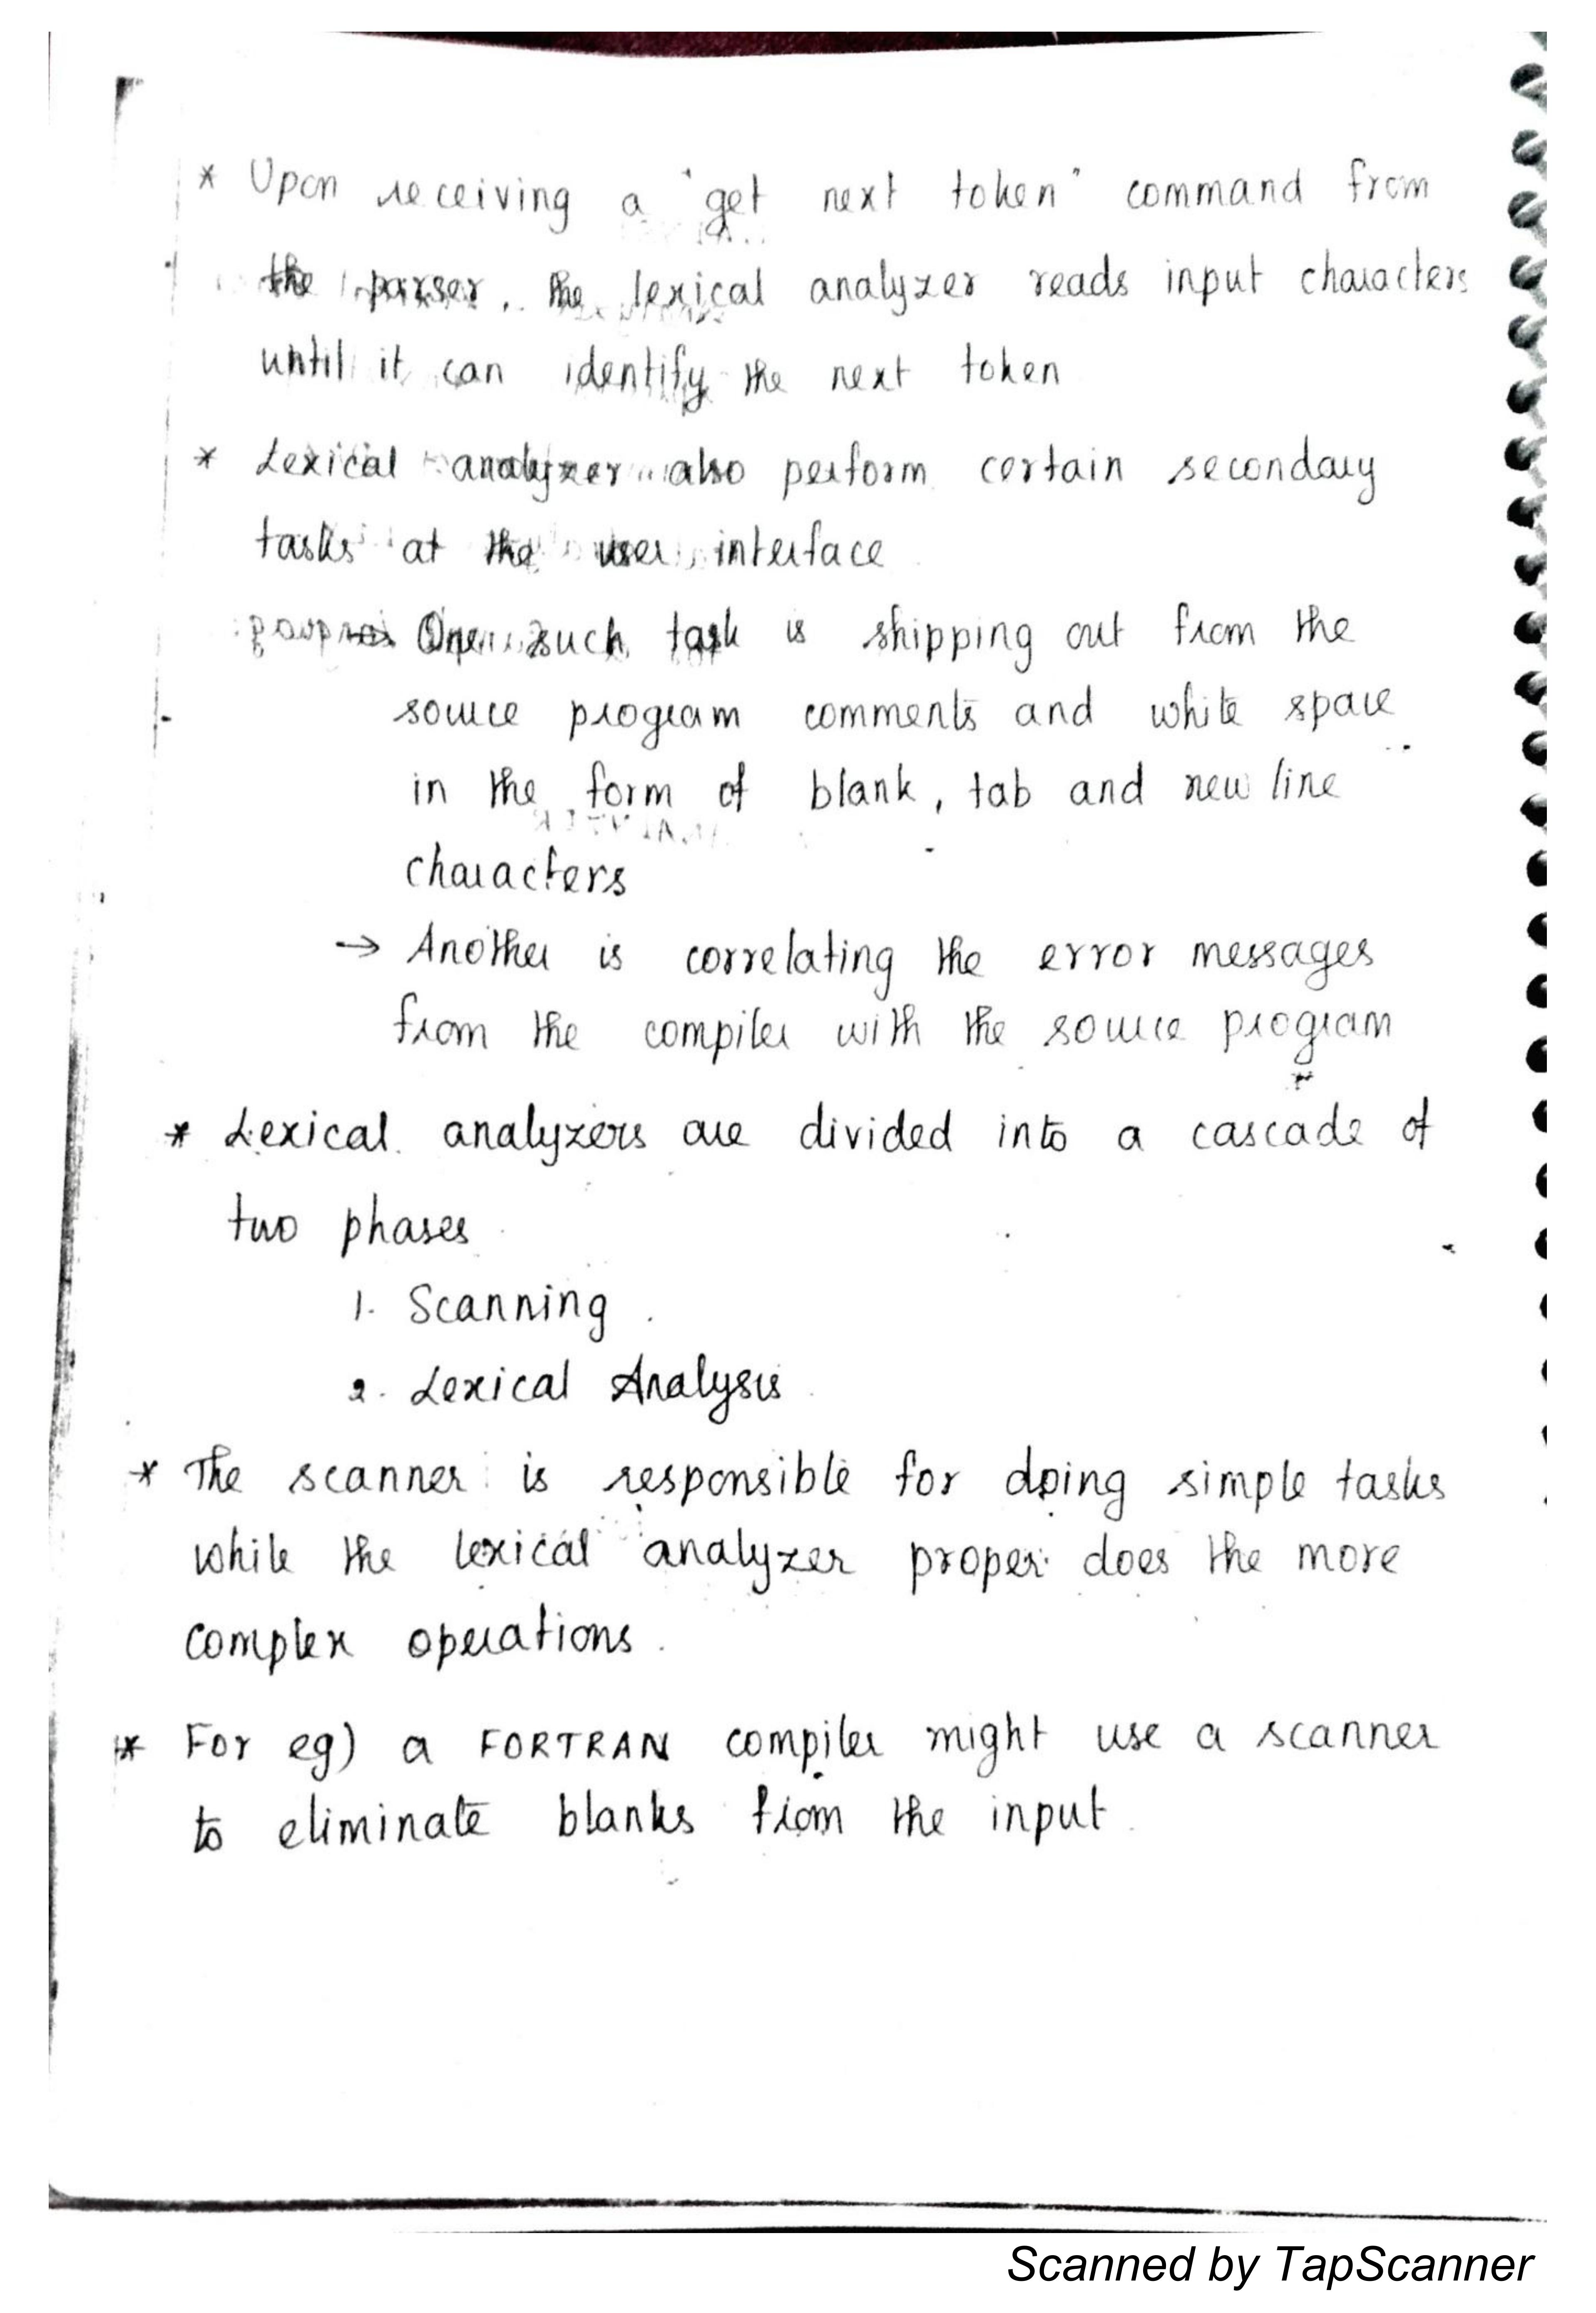 * Upon receiving a "get next token" command from
the parser, the lexical analyzer reads input characters
until it can identify the next token
* Lexical analyzer also perform certain secondary
tasks at the user interface
One such task is shipping out from the
source program comments and white space
in the form of blank, tab and new line
characters
→ Another is correlating the error messages
from the compiler with the source program
* Lexical analyzers are divided into a cascade of
two phases
1. Scanning
2. Lexical Analysis
* The scanner is responsible for doing simple tasks
while the lexical analyzer proper does the more
complex operations.
* For eg) a FORTRAN compiler might use a scanner
to eliminate blanks from the input
Scanned by TapScanner